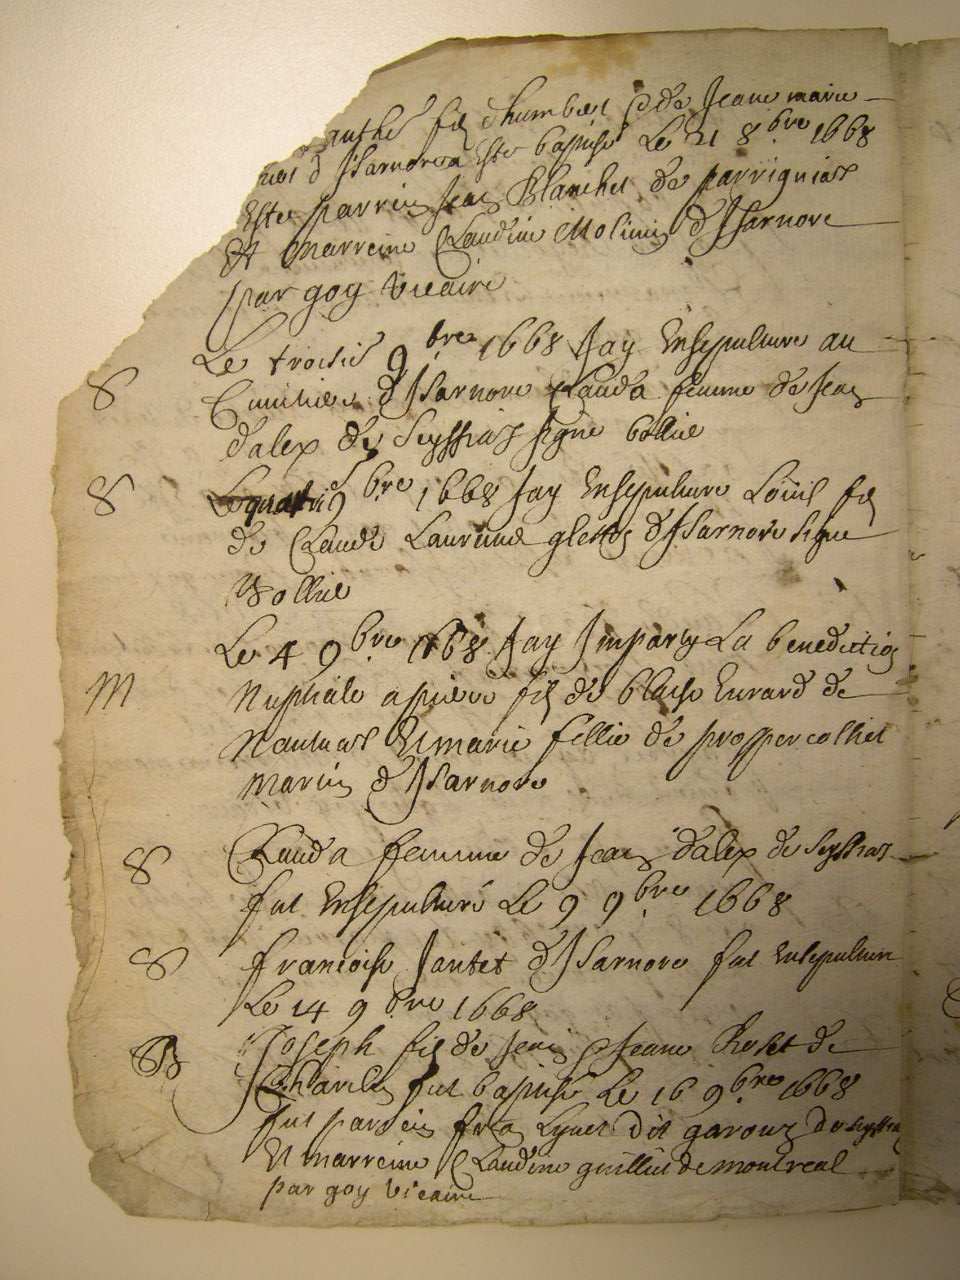 fis d humbert & de Jeane marie
d Isarnore a Este baptisé Le 21 8.bre 1668
Este parrein Jean Blanchet de parrignias
Et marreine Claudine Molinin d Isarnore
par goy vicaire
S Le troisie 9.bre 1668 Jay Ensepulture au
Cimitiere d Isarnore Clauda femme de Jean
dalex de Seyssias signe bollie
S Le quatrie 9bre 1668 Jay Ensepulture Louis fis
de Claude Laurand d Isarnore signe
Bollie
Le 4 9.bre 1668 Jay Imparty La benediction
M Nuptiale a pierre fis de blaise Evrard de
Nantuas Et marie fellie de prosper colliet
Martin d Isarnore
S Clauda femme de Jean dalex de Seyssias
fut Ensepulturé Le 9 9.bre 1668
S francoise Jantet d Isarnore fut Ensepulture
Le 14 9.bre 1668
B Joseph fis de Jean & Jeane Rosset de
Charix fut baptisé Le 16 9.bre 1668
fut parrein dit garouz de Seyssia
Et marreine Claudine guilliet de montreal
par goy vicaire